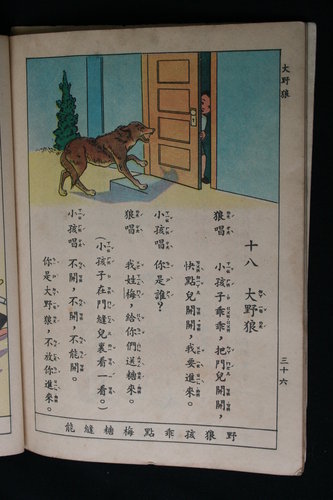 大野狼
三十六
十八 大野狼
狼唱 小孩子乖乖,把門兒開開,
快點兒開開,我要進來。
小孩唱 你是誰?
狼唱 我姓梅,給你們送糖來。
(小孩子在門縫兒裏看一看。)
小孩唱 不開,不開,不能開。
你是大野狼,不放你進來。
野狼孩乖點梅糖縫能